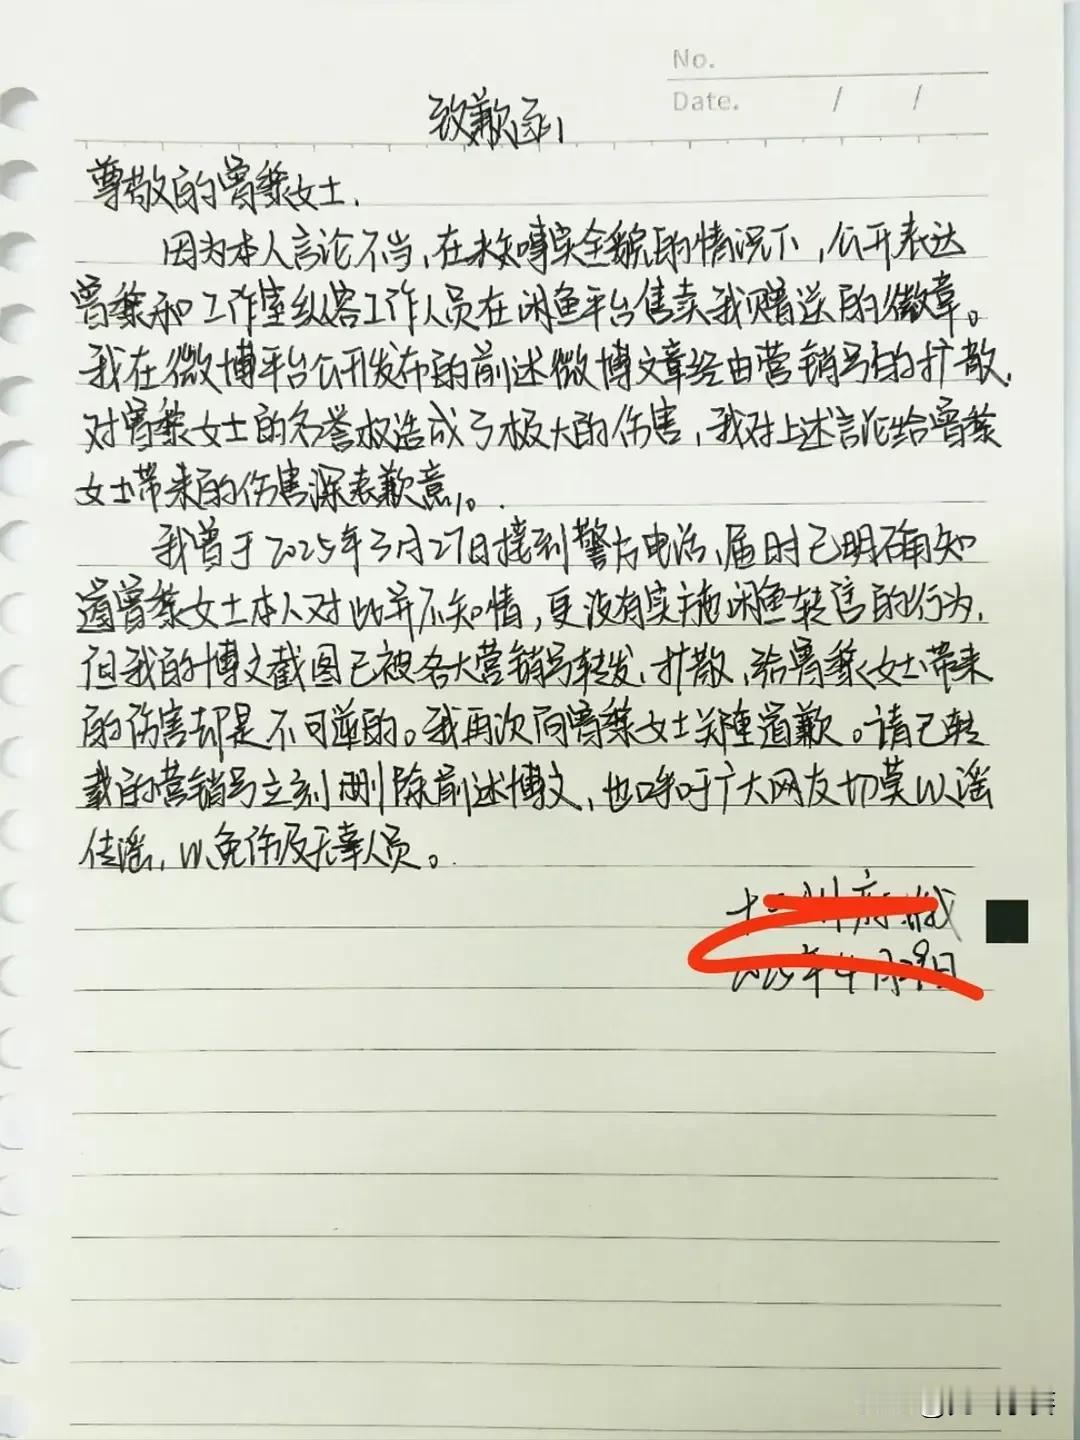 No.
Date. / /
致歉函
尊敬的曾黎女士,
因为本人言论不当,在未知事实全貌的情况下,公开表达
曾黎和工作室纵容工作人员在闲鱼平台售卖我赠送的徽章。
我在微博平台公开发布的前述微博文章经由营销号的扩散,
对曾黎女士的名誉权造成了极大的伤害,我对上述言论给曾黎
女士带来的伤害深表歉意。
我曾于2025年3月27日接到警方电话,届时已明确知
道曾黎女士本人对此并不知情,更没有实施闲鱼转售的行为,
但我的博文截图已被各大营销号转发、扩散,给曾黎女士带来
的伤害却是不可逆的。我再次向曾黎女士郑重道歉。请已转
载的营销号立刻删除前述博文,也呼吁广大网友切莫以谣
传谣,以免伤及无辜人员。
2025年4月29日